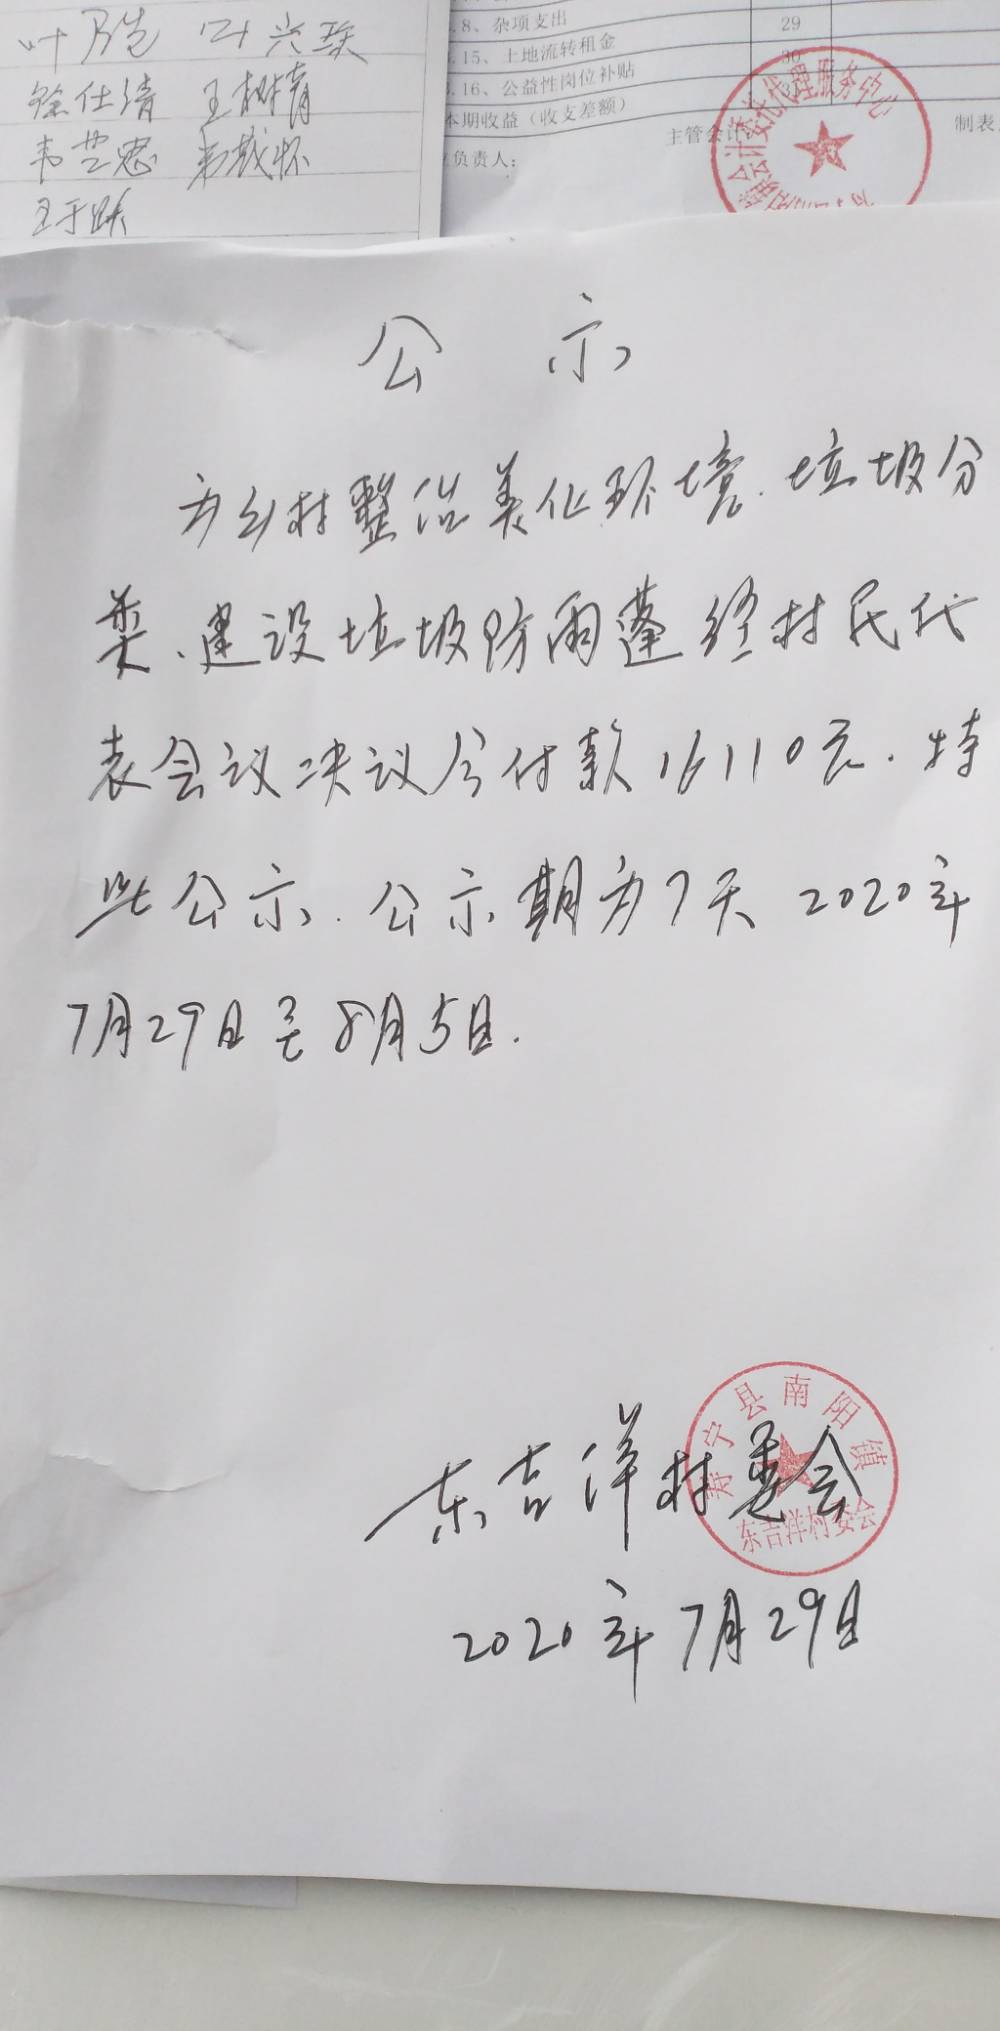 叶
徐仕清 王树青
韦
8、杂项支出 29
.15、土地流转租金 30
.16、公益性岗位补贴 31
本期收益（收支差额）
负责人： 主管会计： 制表
会计委托代理服务中心
公示
为乡村整治美化环境.垃圾分
类、建设垃圾防雨蓬经村民代
表会议决议今付款16110元.特
此公示.公示期为7天 2020年
7月29日至8月5日.
东吉洋村委会
寿宁县南阳镇
东吉洋村委会
2020年7月29日